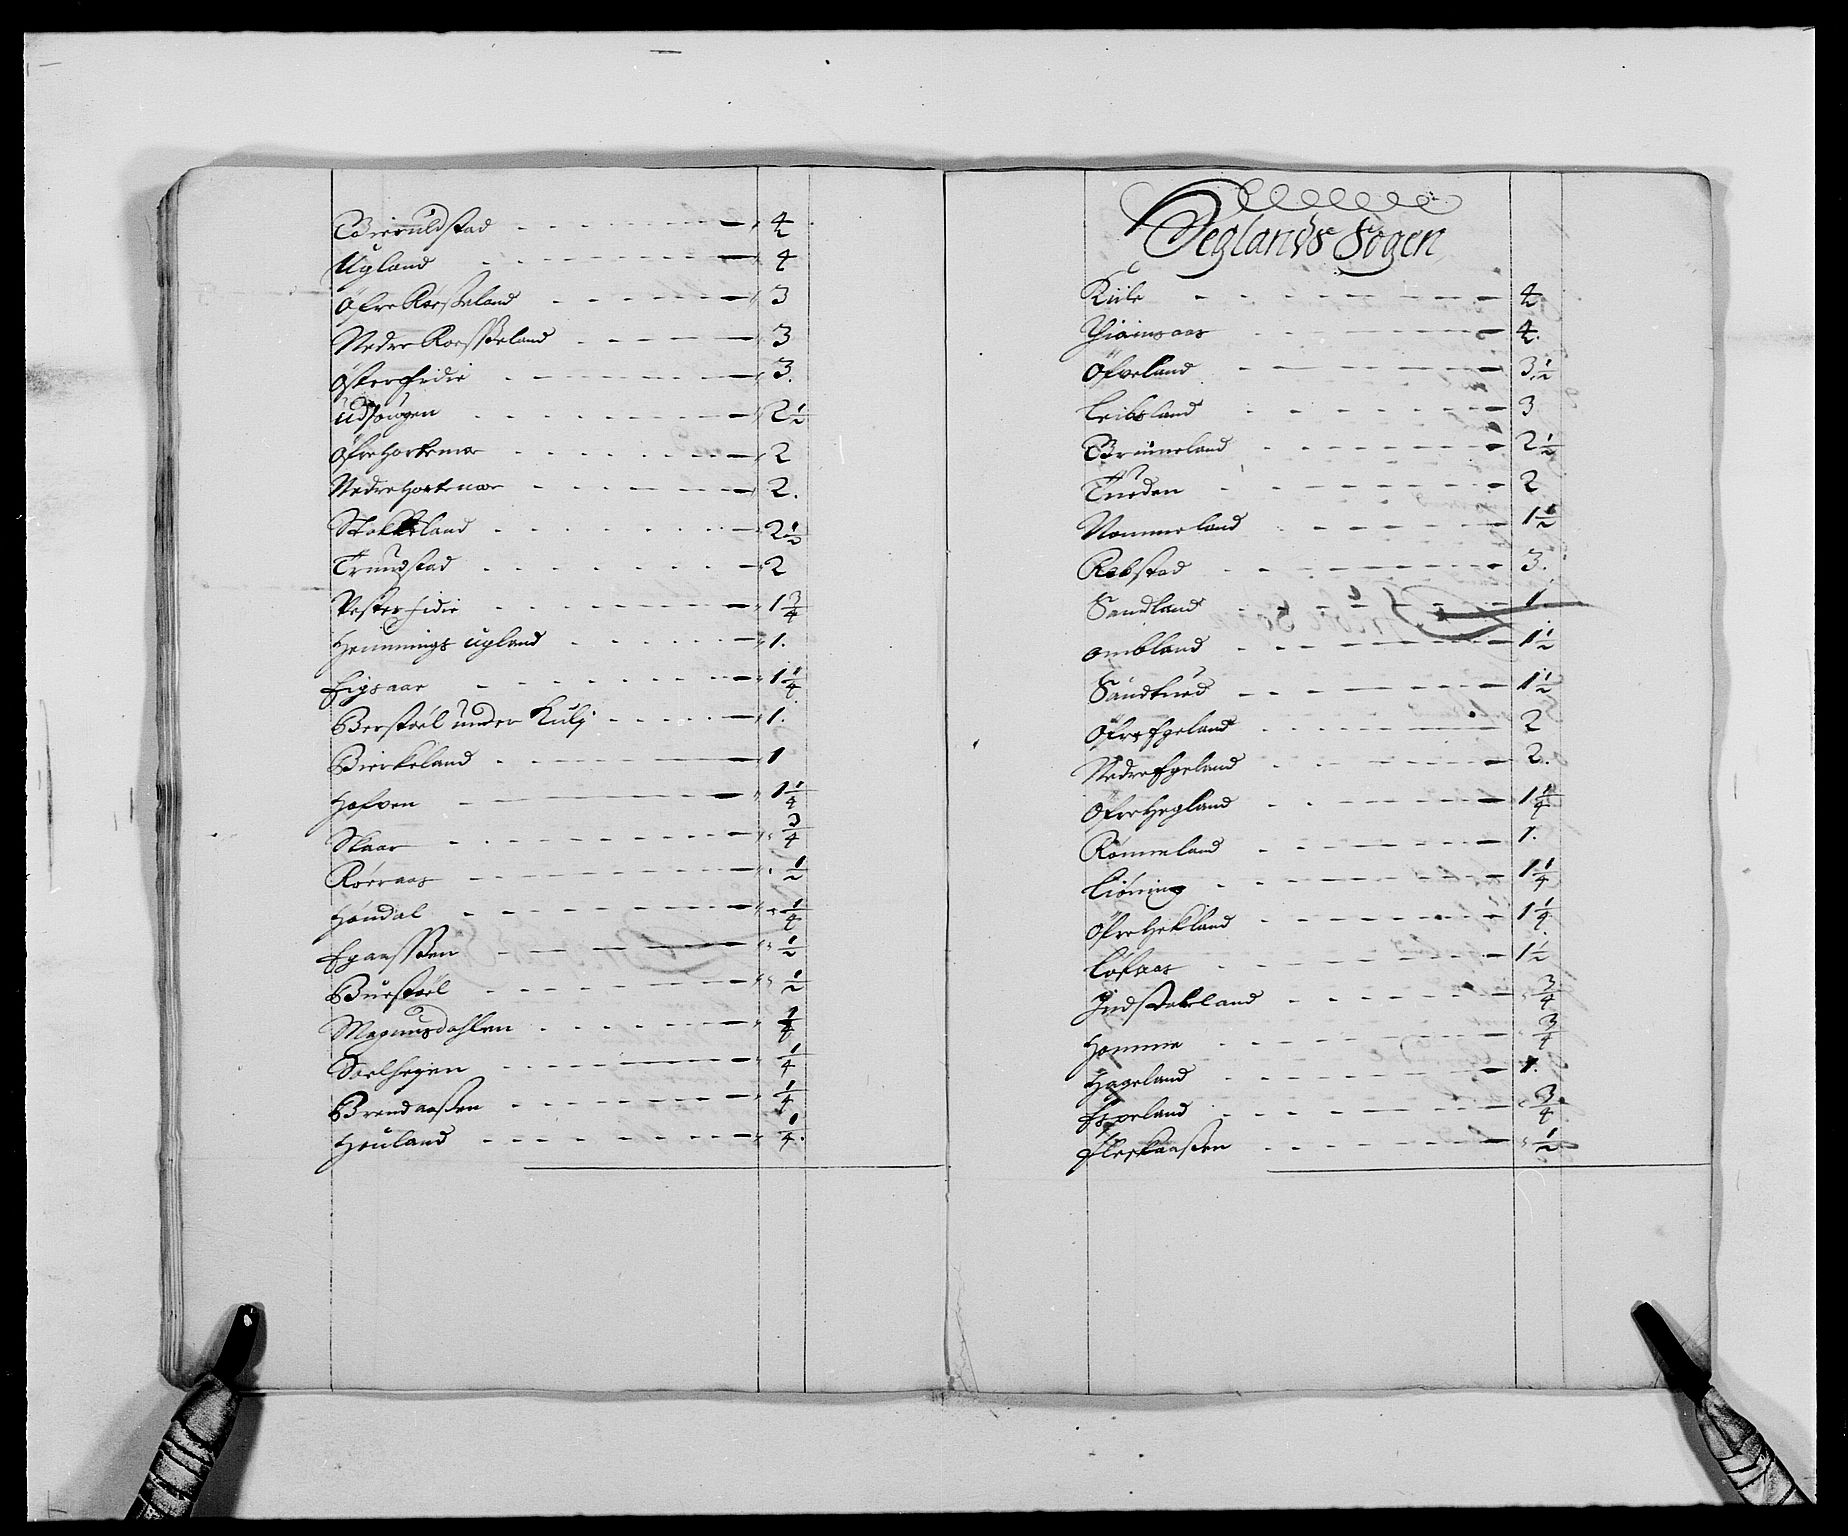 Bioruldstad 4
Ugland 4
Øfre Røesseland 3
Nedre Roesseland 3
Østerhidie 3.
Udhougen 2 1/2
Øfre Hortemoe 2
Nedre Hortemoe 2.
Stokkeland 2 1/2
Trundstad 2
Vesterhidie 1 3/4
Hemmings Ugland 1.
Eigsaae 1 1/4
Berstøel under Kulj 1.
Bierkeland 1
Hofven 1 1/4
Skaar 3/4
Røeraas 1/2
Høndal 1/4
Epaassen 1/2
Buestøel 1/2
Magnusdahlen 1/4
Soelhegen 1/4
Brendaasen 1/4
Houland 1/4.
Øeglands Sogen
Kiile 4
4.
Øfveland 3 1/2
Leibsland 3
Brinneland 2 1/2
Tueden 2
Nommeland 1 1/2
Robstad 3.
Sandland 1
Ombland 1 1/2
Sandknød 1 1/2
Øfre Egeland 2
Nedre Egeland 2.
Øfre Hegland 1 1/4
Rømmeland 1.
Liøning 1 1/4
Øfre Hekland 1 1/4.
Løfaas 1 1/2
Indstebeland 3/4
Homme 3/4
Hageland 1.
Espeland 3/4
Fleskaasen 1/2